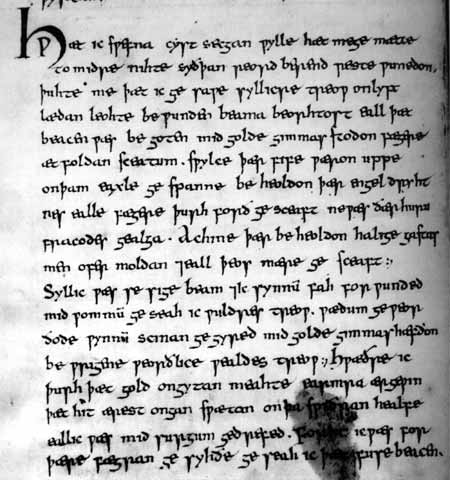 Hƿæt ic sƿefna cyst secgan ƿylle hæt me ge mætte
to midre nihte syðþan reord berend reste ƿunedon.
þuhte me þæt ic ge saƿe syllicre treoƿ on lyft
lædan leohte be ƿunden beama beorhtost eall þæt
beacen ƿæs be goten mid golde gimmas stodon fægere
æt foldan sceatum. sƿylce þær fife ƿæron uppe
on þam eaxle ge spanne be heoldon þær engel dryht
nes ealle fægere þurh forð ge sceaft ne ƿæs ðær huru
fracodes gealga. Ac hine þær be heoldon halige gastas
men ofer moldan ⁊ eall þeos mære ge sceaft:
Syllic ƿæs se sige beam ⁊ ic synnū fah for ƿunded
mid ƿommū ge seah ic ƿuldres treoƿ. ƿædum ge ƿeor
ðode ƿynnū scinan ge gyred mid golde gimmas hæfdon
be ƿrigene ƿeorðlice ƿealdes treoƿ; hƿæðre ic
þurh þæt gold ongytan meahte earmra ærgeƿin
þæt hit ærest ongan sƿætan on þa sƿiðran healfe
eall ic ƿæs mid surgum gedrefed. forht ic ƿæs for
þære fægran ge syhðe ge seah ic þæt fuse beacen.